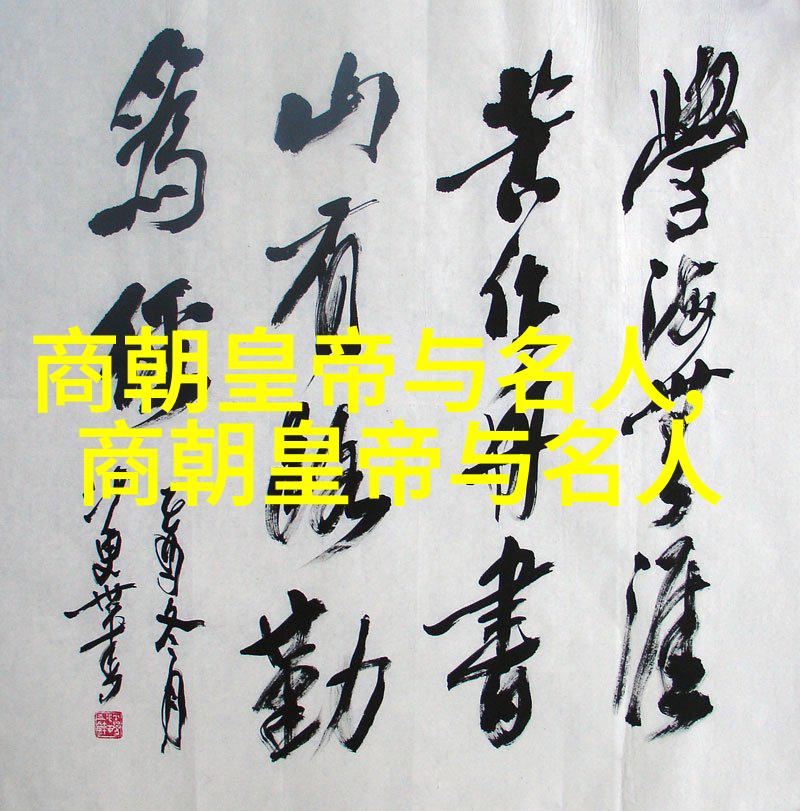 學海無涯
苦作舟書
山有路勤
為徑
乙酉冬月
商朝皇帝与名人,
商朝皇帝与名人